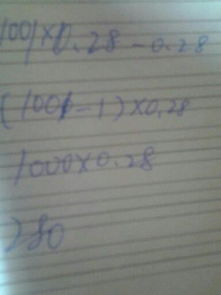 1001×0.28-0.28
(1001-1)×0.28
1000×0.28
280